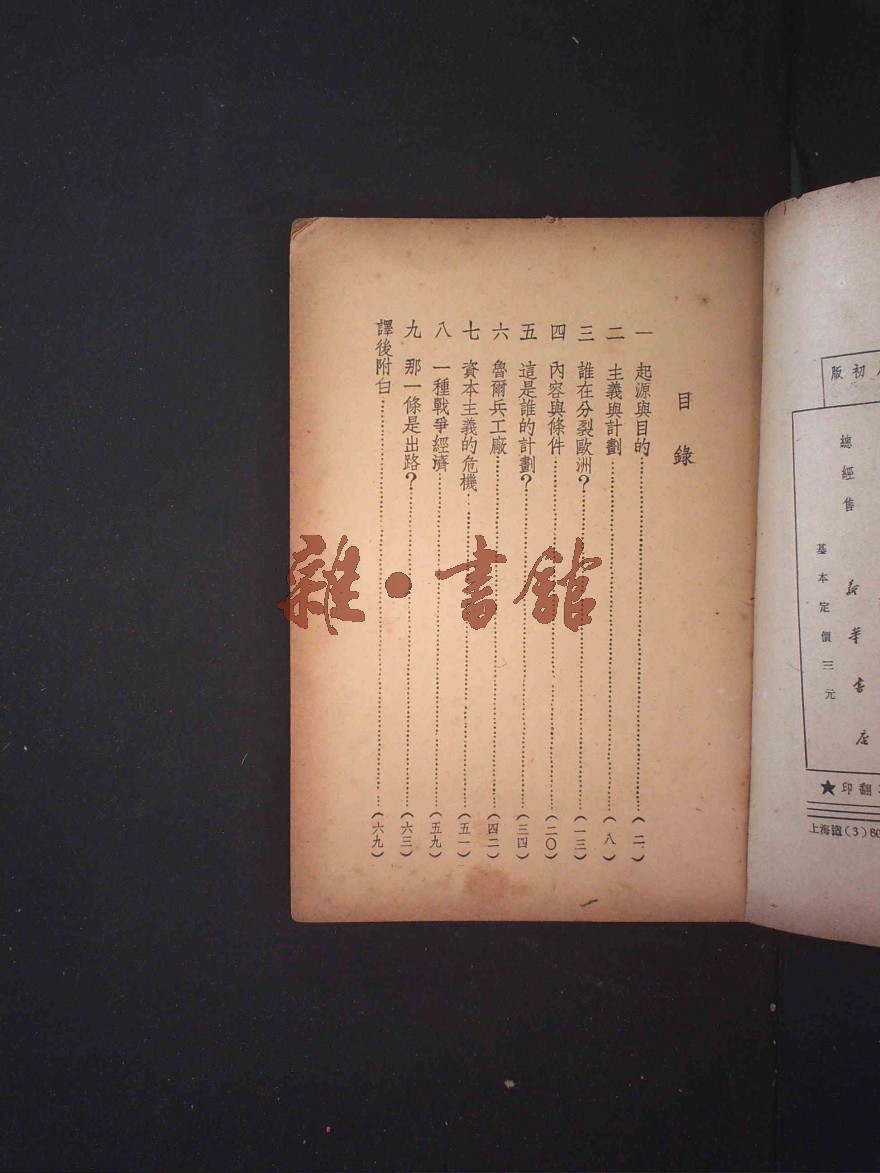 版初
總經售 新華書店
基本定價三元
★印翻
上海(3)80
目錄
一 起源與目的……(二)
二 主義與計劃……(八)
三 誰在分裂歐洲?……(一三)
四 內容與條件……(二〇)
五 這是誰的計劃?……(三四)
六 魯爾兵工廠……(四二)
七 資本主義的危機……(五一)
八 一種戰爭經濟……(五九)
九 那一條是出路?……(六三)
譯後附白……(六九)
雜·書館